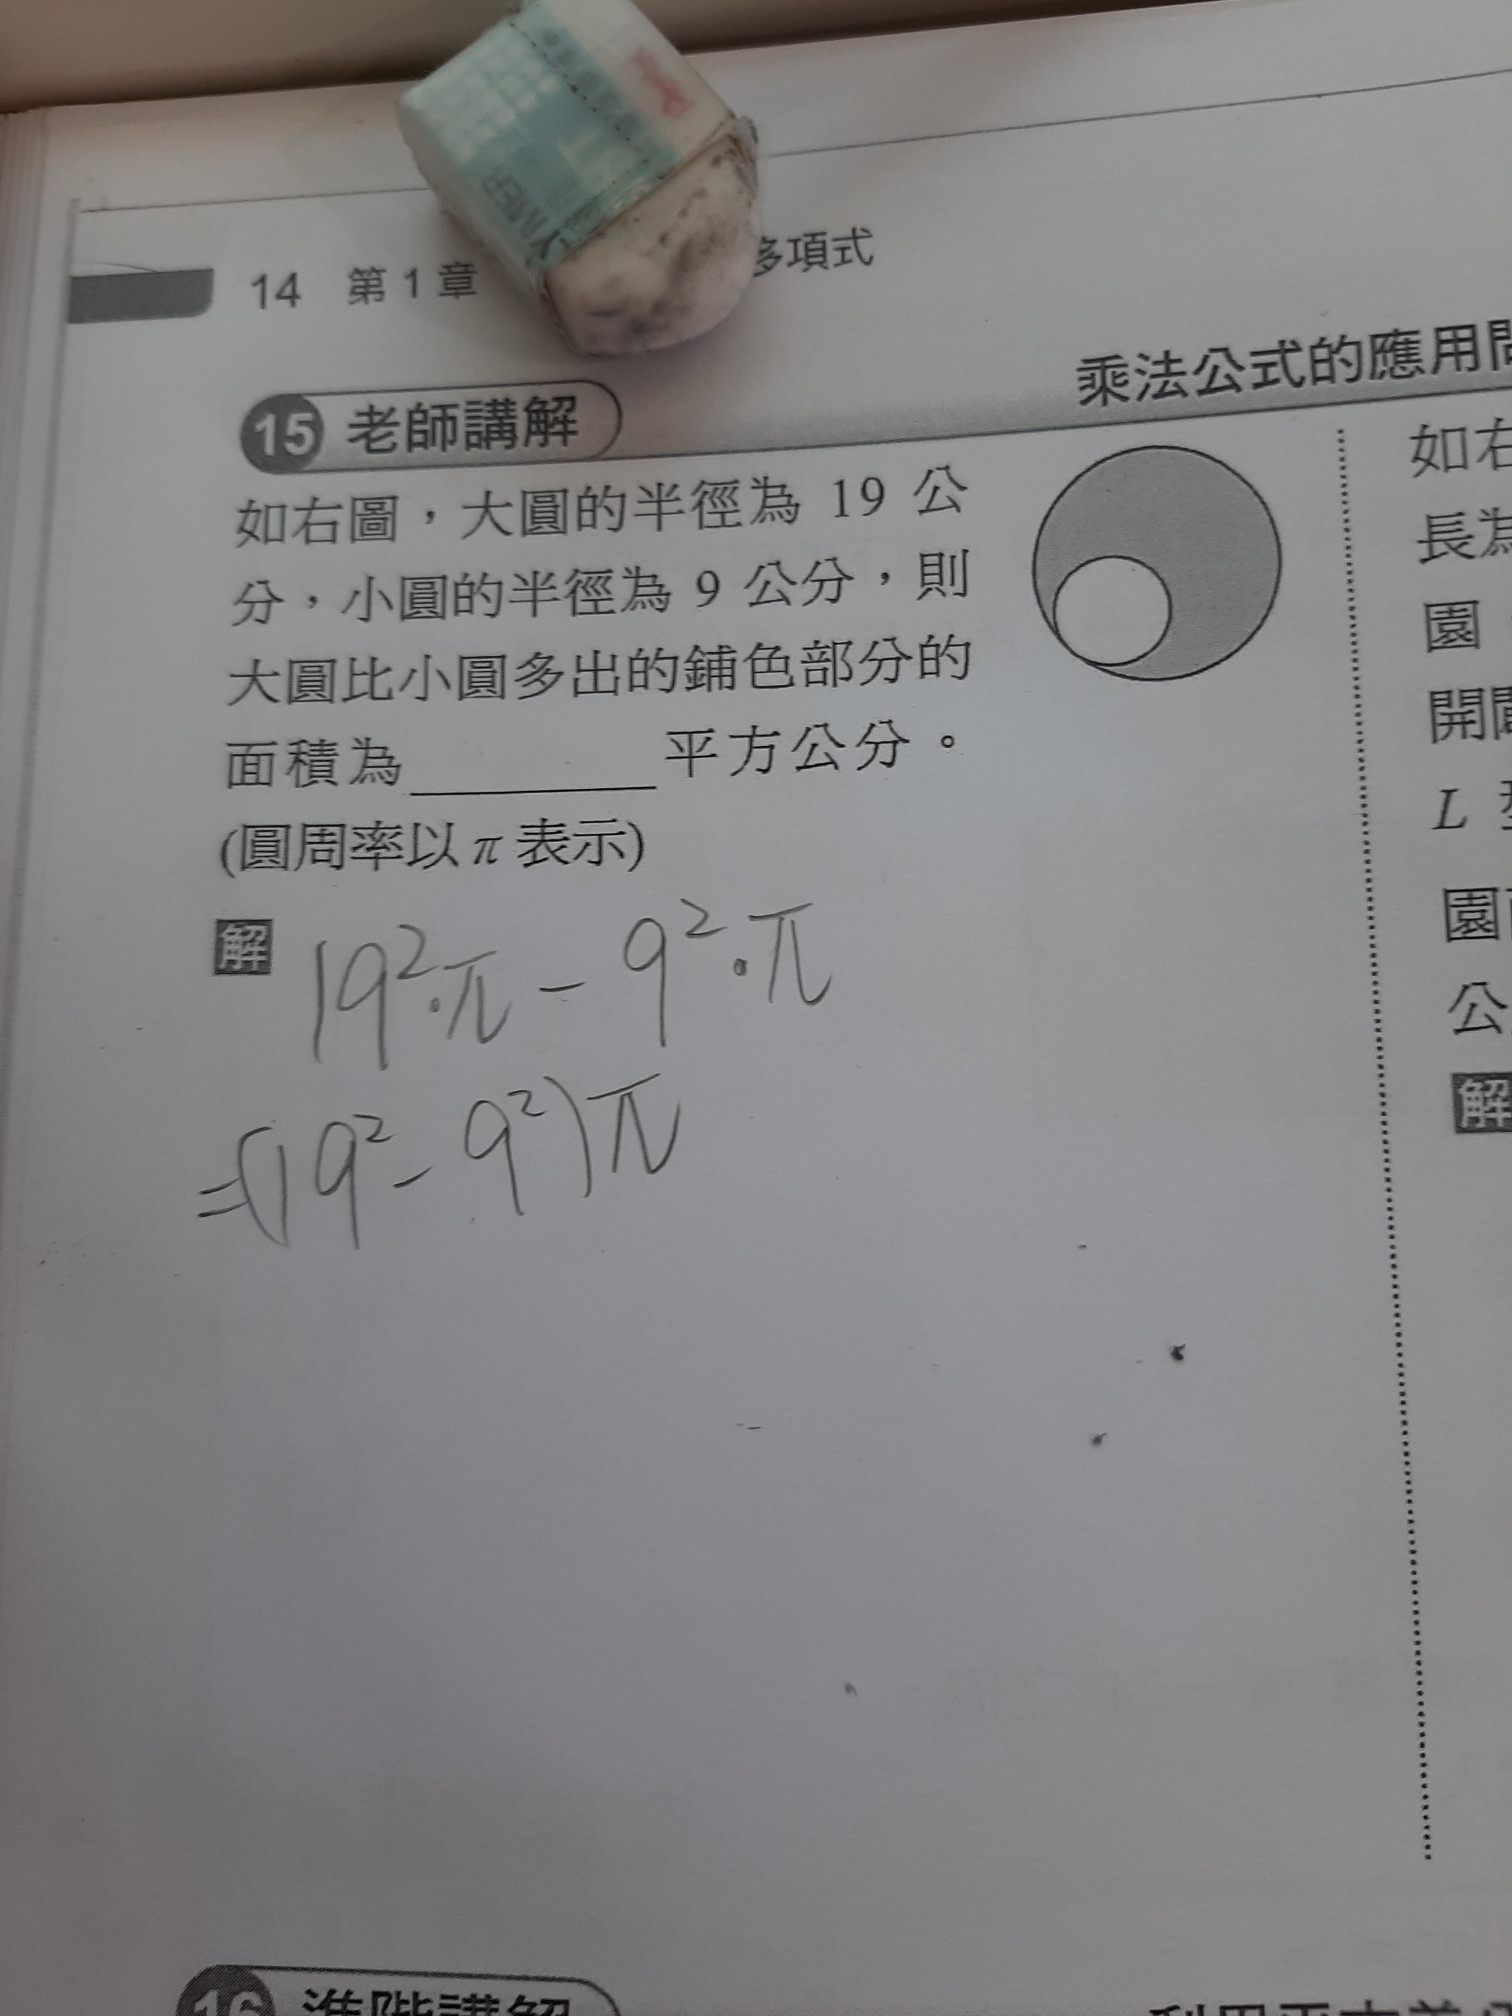 14 第1章
多項式
乘法公式的應用
15 老師講解
如右圖，大圓的半徑為 19 公
分，小圓的半徑為 9 公分，則
大圓比小圓多出的鋪色部分的
面積為________平方公分。
(圓周率以π表示)
解 19²·π - 9²·π
=(19² - 9²)π
如右
長為
園
開闢
L
園
公
解
16 進階講解